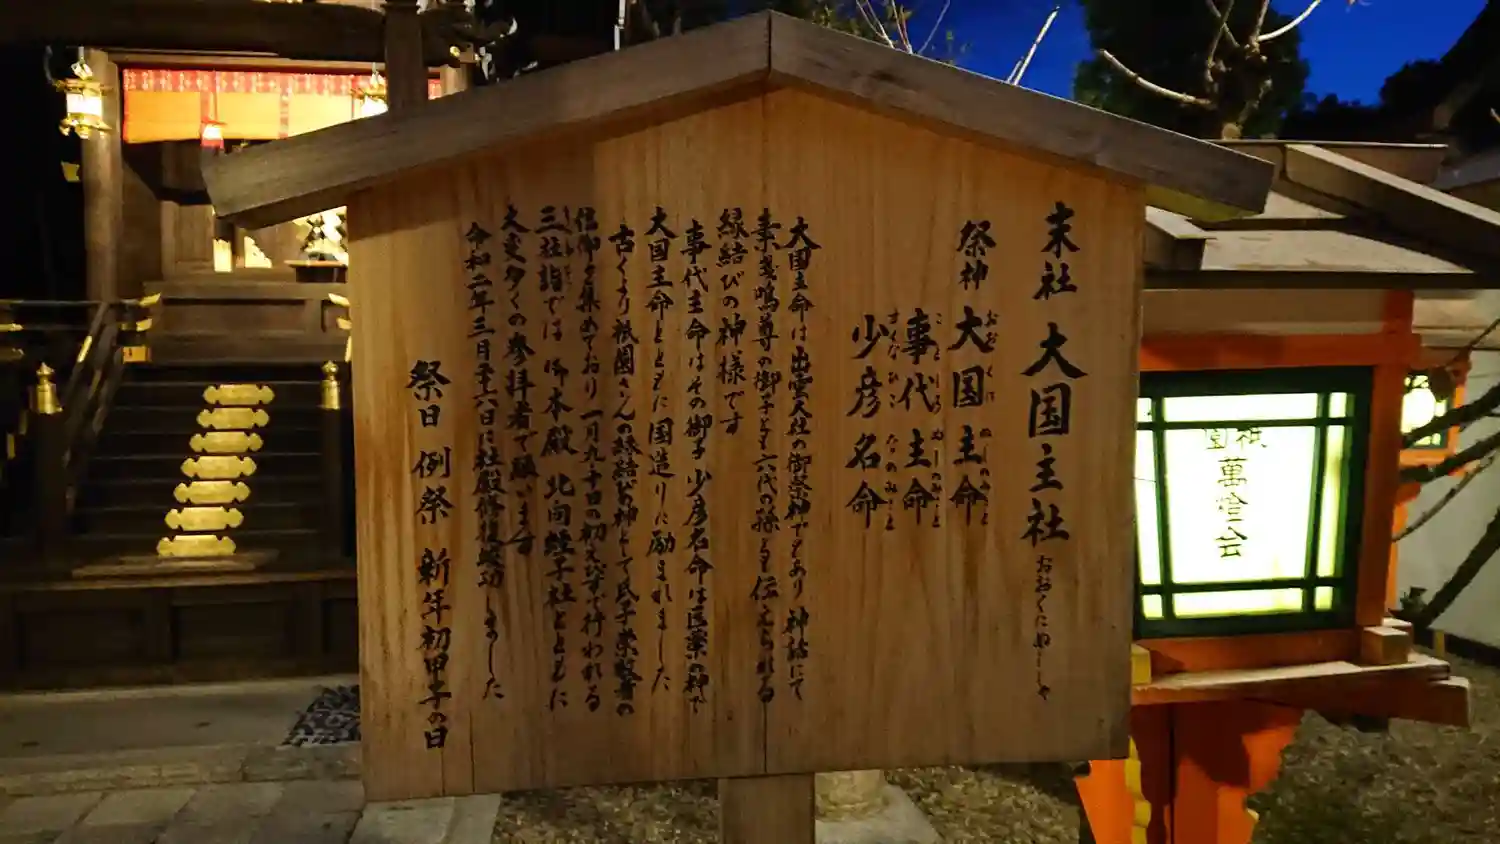 末社 大国主社 おおくにぬししゃ
祭神 大国主命 おおくにぬしのみこと
事代主命 ことしろぬしのみこと
少彦名命 すくなひこなのみこと
大国主命は出雲大社の御祭神でもあり 神話にて
素戔嗚尊の御子とも六代の孫とも伝えられる
縁結びの神様です
事代主命はその御子 少彦名命は医薬の神で
大国主命とともに国造りに励まれました
古くより祇園さんの縁結びの神として氏子崇敬者の
信仰を集めており 一月九十日の初えびすで行われる
三社詣では 御本殿 北向蛭子社とともに
大変多くの参拝者で賑います
令和二年三月二十六日に社殿修復竣功しました
祭日 例祭 新年初甲子の日
祇園
萬燈会